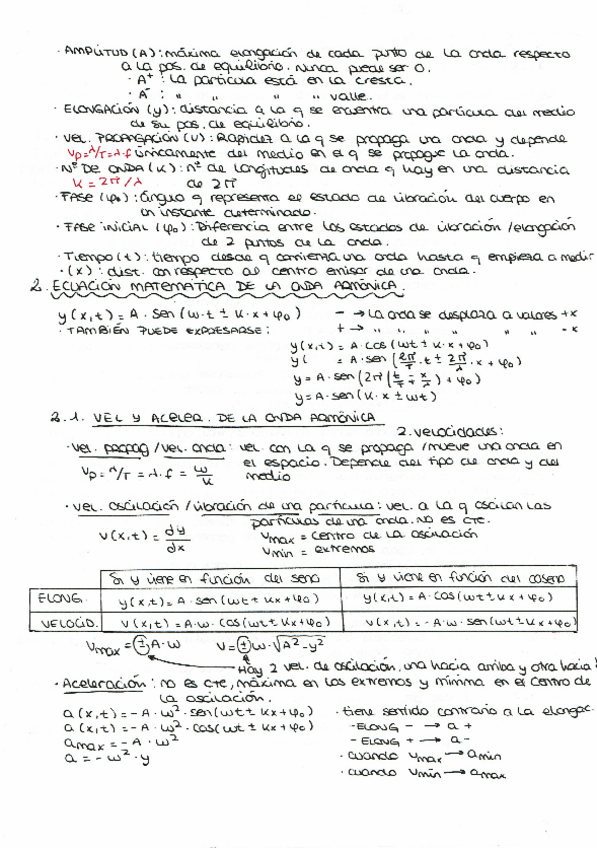 · AMPLITUD (A): máxima elongación de cada punto de la onda respecto
a la pos. de equilibrio. Nunca puede ser 0.
· A⁺: la partícula está en la cresta.
· A⁻: " " " " valle.
· ELONGACIÓN (y): distancia a la q se encuentra una partícula del medio
de su pos. de equilibrio.
· VEL. PROPAGACIÓN (v): Rapidez a la q se propaga una onda y depende
Vp=λ/T=λ·f únicamente del medio en el q se propague la onda.
· Nº DE ONDA (K): nº de longitudes de onda q hay en una distancia
K = 2π/λ de 2π
· FASE (φ₀): ángulo q representa el estado de vibración del cuerpo en
un instante determinado.
· FASE INICIAL (φ₀): Diferencia entre los estados de vibración/elongación
de 2 puntos de la onda.
· Tiempo (t): tiempo desde q comienza una onda hasta q empieza a medir
· (x): dist. con respecto al centro emisor de una onda.
2. ECUACIÓN MATEMÁTICA DE LA ONDA ARMÓNICA.
y(x,t) = A · sen(ω·t ± K·x + φ₀) - → la onda se desplaza a valores +x
· TAMBIÉN PUEDE EXPRESARSE: + → " " " " " -x
y(x,t) = A·cos(ωt ± K·x + φ₀)
y( = A·sen(2π/T · t ± 2π/λ · x + φ₀)
y = A·sen(2π(t/T ± x/λ) + φ₀)
y = A·sen(K·x ± ωt)
2.1. VEL Y ACELER. DE LA ONDA ARMÓNICA
2.velocidades:
· Vel. propag/vel. onda: vel. con la q se propaga/mueve una onda en
Vp = λ/T = λ·f = ω/K el espacio. Depende del tipo de onda y del
medio
· Vel. oscilación/vibración de una partícula: vel. a la q oscilan las
partículas de una onda. No es cte.
V(x,t) = dy/dx Vmax = centro de la oscilación
Vmin = extremos
Si y viene en función del seno Si y viene en función del coseno
ELONG. y(x,t) = A·sen(ωt ± Kx + φ₀) y(x,t) = A·cos(ωt ± Kx + φ₀)
VELOCID. V(x,t) = A·ω·cos(ωt ± Kx + φ₀) V(x,t) = -A·ω·sen(ωt ± Kx + φ₀)
Vmax = ±A·ω V = ±ω·√A²-y²
Hay 2 vel. de oscilación, una hacia arriba y otra hacia
· Aceleración: no es cte, máxima en los extremos y mínima en el centro de
la oscilación.
a(x,t) = -A·ω²·sen(ωt ± Kx + φ₀) · tiene sentido contrario a la elongac.
a(x,t) = -A·ω²·cos(ωt ± Kx + φ₀) - ELONG - → a +
amax = -A·ω² - ELONG + → a -
a = -ω²·y · cuando Vmax → amin
· cuando Vmin → amax